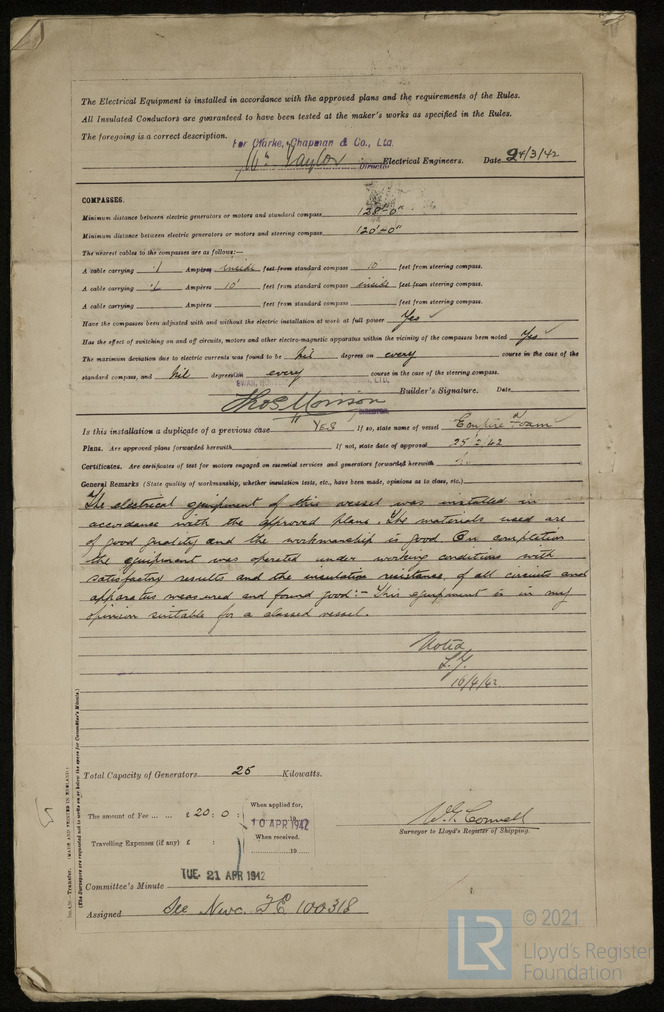 The Electrical Equipment is installed in accordance with the approved plans and the requirements of the Rules.
All Insulated Conductors are guaranteed to have been tested at the maker's works as specified in the Rules.
The foregoing is a correct description.
For Clarke, Chapman & Co., Ltd.
Wm Taylor Director Electrical Engineers. Date 24/3/42
COMPASSES.
Minimum distance between electric generators or motors and standard compass 128'-0"
Minimum distance between electric generators or motors and steering compass 120'-0"
The nearest cables to the compasses are as follows:—
A cable carrying .1 Amperes inside feet from standard compass 10 feet from steering compass.
A cable carrying .1 Amperes 10' feet from standard compass inside feet from steering compass.
A cable carrying Amperes feet from standard compass feet from steering compass.
Have the compasses been adjusted with and without the electric installation at work at full power Yes
Has the effect of switching on and off circuits, motors and other electro-magnetic apparatus within the vicinity of the compasses been noted Yes
The maximum deviation due to electric currents was found to be Nil degrees on every course in the case of the
standard compass, and Nil degrees on every course in the case of the steering compass.
SWAN, LTD.
Thos Morison Builder's Signature. Date
DIRECTOR
Is this installation a duplicate of a previous case YES If so, state name of vessel Empire Foam
Plans. Are approved plans forwarded herewith If not, state date of approval 25/2/42
Certificates. Are certificates of test for motors engaged on essential services and generators forwarded herewith
General Remarks (State quality of workmanship, whether insulation tests, etc., have been made, opinions as to class, etc.)
The electrical equipment of this vessel was installed in
accordance with the approved plans. The materials used are
of good quality and the workmanship is good. On completion
the equipment was operated under working conditions with
satisfactry results and the insulation resistance of all circuits and
apparatus measured and found good:- This equipment is in my
opinion suitable for a classed vessel.
Noted
10/4/42
Total Capacity of Generators 25 Kilowatts.
The amount of Fee ... ... £ 20 : 0 : When applied for,
10 APR 1942
When received.
Travelling Expenses (if any) £ : : 19
W.G. Connell
Surveyor to Lloyd's Register of Shipping.
Committee's Minute TUE. 21 APR 1942
Assigned See Nwc. F.E. 100318
Transfer. (MADE AND PRINTED IN ENGLAND.)
(The Surveyors are requested not to write on or below the space for Committee's Minute.)
LR © 2021
Lloyd's Register
Foundation